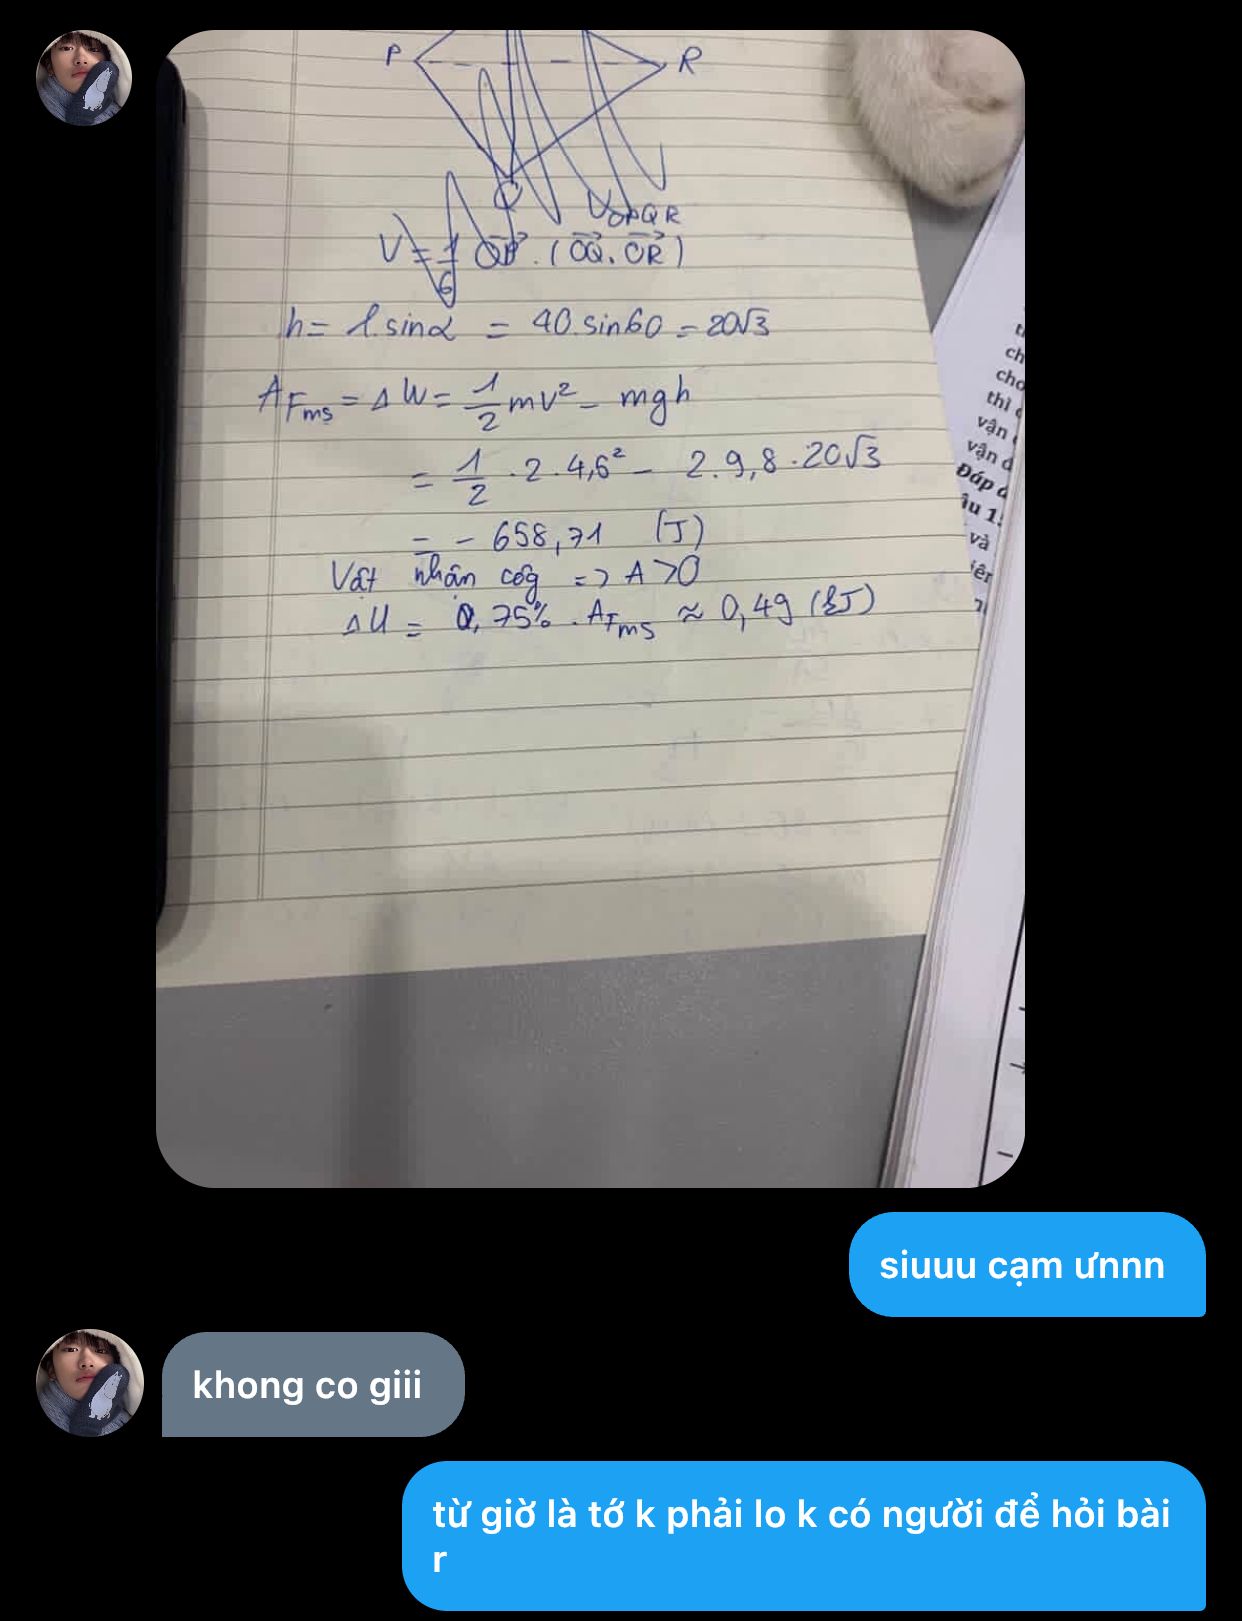 P R
V_OPQR
V = 1/6 OP . (OQ . OR)
h = l.sinα = 40.sin60 = 20√3
A_Fms = ΔW = 1/2 mv² - mgh
= 1/2 . 2 . 4,6² - 2.9,8.20√3
= - 658,71 (J)
Vật nhận côg => A > 0
ΔU = 0,75% . A_Fms ≈ 0,49 (kJ)
ch
cho
thì
vận
vận đ
Đáp
và
siuuu cạm ưnnn
khong co giii
từ giờ là tớ k phải lo k có người để hỏi bài
r